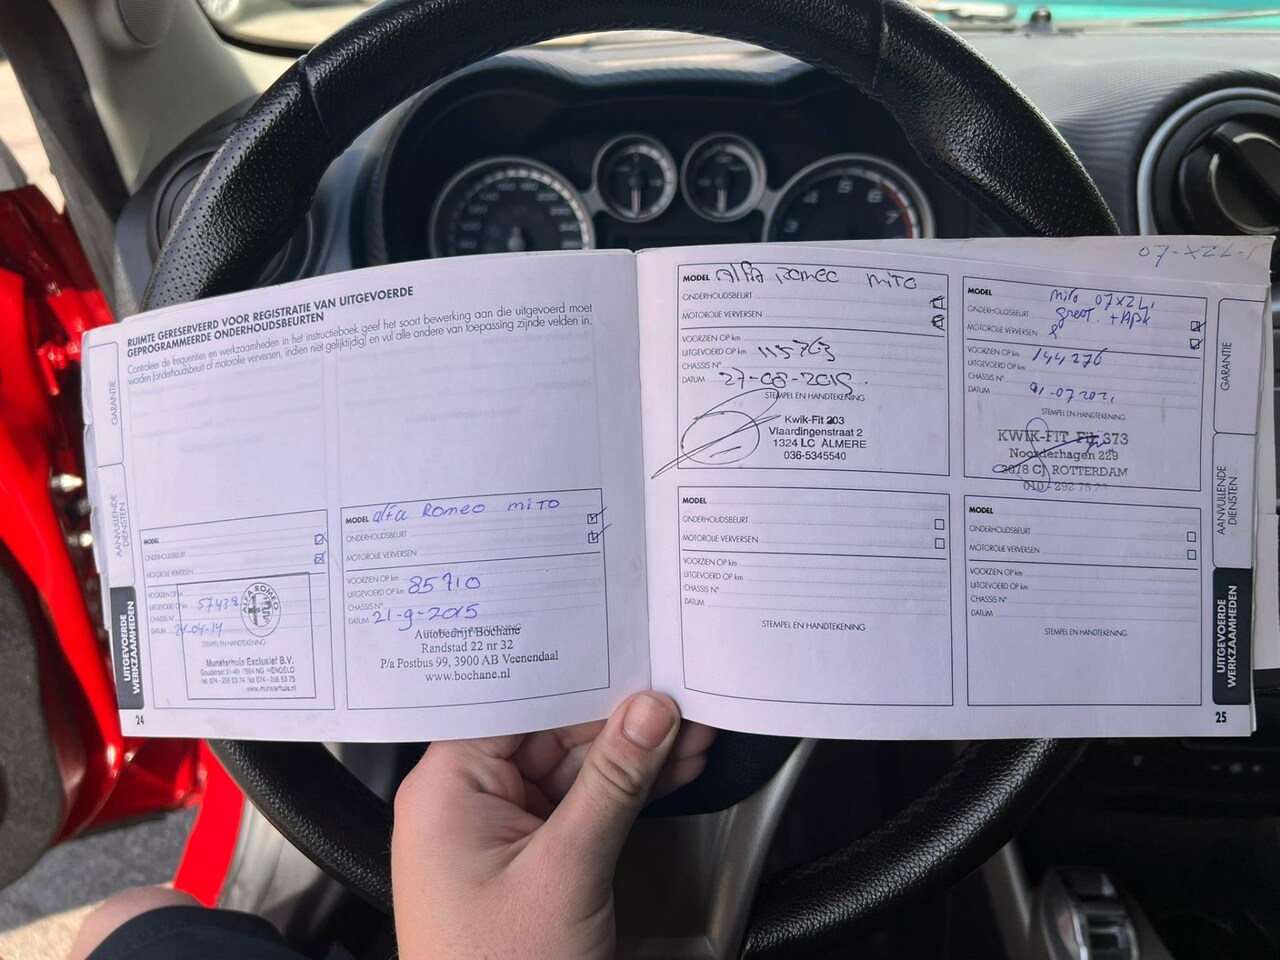 RUIMTE GERESERVEERD VOOR REGISTRATIE VAN UITGEVOERDE
GEPROGRAMMEERDE ONDERHOUDSBEURTEN
Controleer de frequenties en werkzaamheden in het instructieboek geef het soort bewerking aan die uitgevoerd moet
worden (onderhoudsbeurt of motorolie verversen, indien niet gelijktijdig) en vul alle andere van toepassing zijnde velden in.
GARANTIE
AANVULLENDE
DIENSTEN
UITGEVOERDE
WERKZAAMHEDEN
24
MODEL
ONDERHOUDSBEURT
MOTOROLIE VERVERSEN
VOORZIEN OP km
UITGEVOERD OP km 57438
CHASSIS N°
DATUM 24-04-14
STEMPEL EN HANDTEKENING
ALFA ROMEO
Munsterhuis Exclusief B.V.
www.munsterhuis.nl
MODEL alfa Romeo mito
ONDERHOUDSBEURT
MOTOROLIE VERVERSEN
VOORZIEN OP km
UITGEVOERD OP km 85710
CHASSIS N°
DATUM 21-9-2015
Autobedrijf Bochane
Randstad 22 nr 32
P/a Postbus 99, 3900 AB Veenendaal
www.bochane.nl
07-XZL-1
MODEL Alfa Romeo mito
ONDERHOUDSBEURT
MOTOROLIE VERVERSEN
VOORZIEN OP km
UITGEVOERD OP km 115763
CHASSIS N°
DATUM 27-08-2018
STEMPEL EN HANDTEKENING
Kwik-Fit 203
Vlaardingenstraat 2
1324 LC ALMERE
036-5345540
MODEL mito 07XZL1
ONDERHOUDSBEURT groot + Apk
MOTOROLIE VERVERSEN
VOORZIEN OP km
UITGEVOERD OP km 144276
CHASSIS N°
DATUM 01-07 2021
STEMPEL EN HANDTEKENING
KWIK-FIT Fit 373
Noorderhagen 229
3078 CJ ROTTERDAM
MODEL
ONDERHOUDSBEURT
MOTOROLIE VERVERSEN
VOORZIEN OP km
UITGEVOERD OP km
CHASSIS N°
DATUM
STEMPEL EN HANDTEKENING
MODEL
ONDERHOUDSBEURT
MOTOROLIE VERVERSEN
VOORZIEN OP km
UITGEVOERD OP km
CHASSIS N°
DATUM
STEMPEL EN HANDTEKENING
GARANTIE
AANVULLENDE
DIENSTEN
UITGEVOERDE
WERKZAAMHEDEN
25